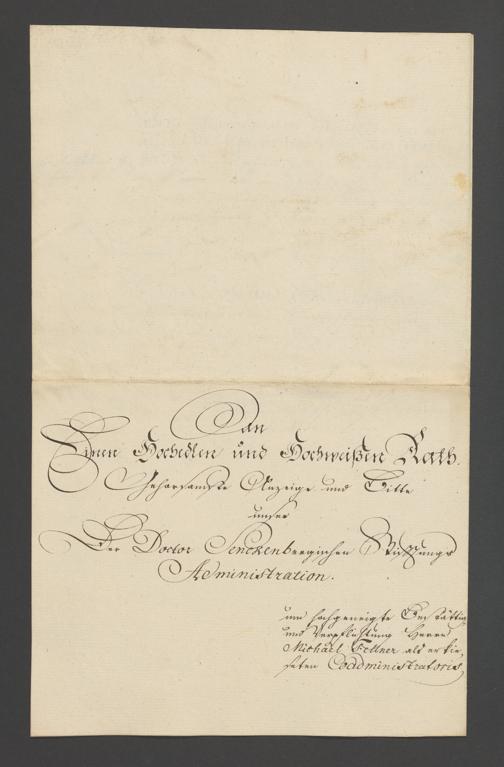 An
Einen Hochedlen und Hochweißen Rath.
Gehorsamste Anzeige und Bitte
unser
Der Doctor Senckenbergischen Stiftungs
Administration.
um hochgeneigte Bestättig
und Verpflichtung Herrn
Michael Fellner als erkie,
seten Coadministratoris